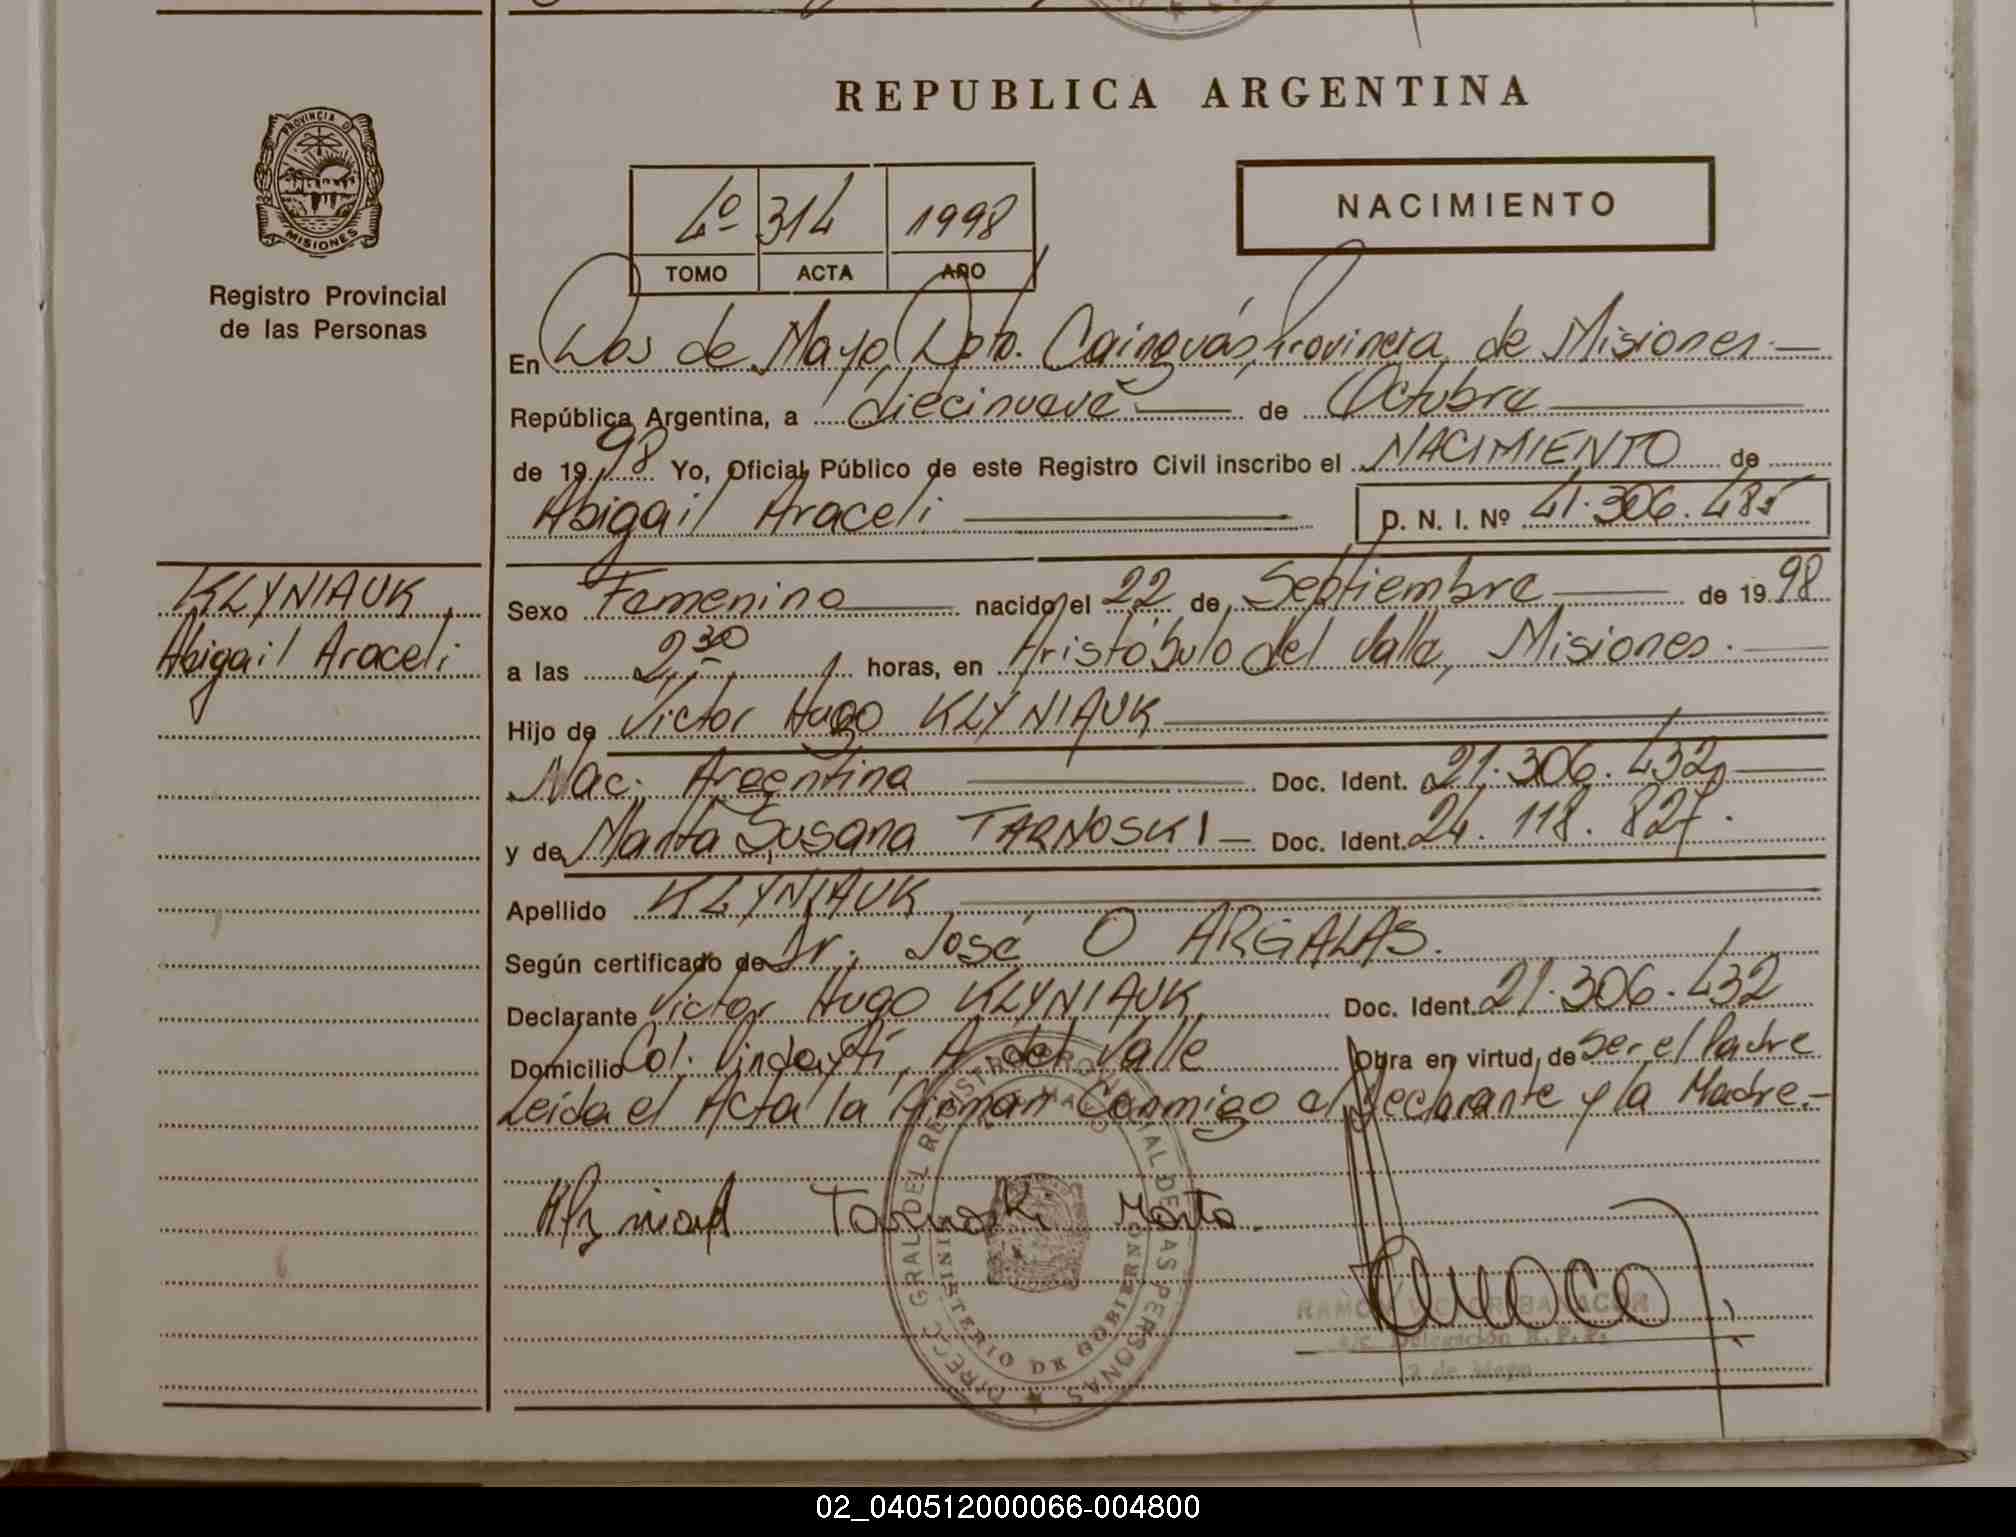 REPUBLICA ARGENTINA
PROVINCIA D
MISIONES
Registro Provincial
de las Personas
4º 314 1998
TOMO ACTA AÑO
NACIMIENTO
En Dos de Mayo, Dpto. Cainguás, Provincia de Misiones.—
República Argentina, a diecinueve de Octubre
de 1998 Yo, Oficial Público de este Registro Civil inscribo el NACIMIENTO de
Abigail Araceli D. N. I. Nº 41.306.485
KLYNIAUK,
Abigail Araceli
Sexo Femenino nacido el 22 de Septiembre de 1998
a las 2,30 horas, en Aristóbulo del Valle, Misiones.
Hijo de Victor Hugo KLYNIAUK
Nac. Argentina Doc. Ident. 21.306.432
y de Marta Susana TARNOSKI — Doc. Ident. 24.118.827.
Apellido KLYNIAUK
Según certificado de Dr. José O ARGALAS.
Declarante Victor Hugo KLYNIAUK Doc. Ident. 21.306.432
Domicilio Col. Pindaytí, A. del Valle Obra en virtud de Ser el Padre
Leída el Acta la firman Conmigo el declarante y la Madre.—
Tarnoski Marta.
DIRECC. GRAL DEL REGISTRO PROVINCIAL DE LAS PERSONAS
MINISTERIO DE GOBIERNO
RAMON VICTOR
a/c. Delegación R. P. P.
2 de Mayo
02_040512000066-004800